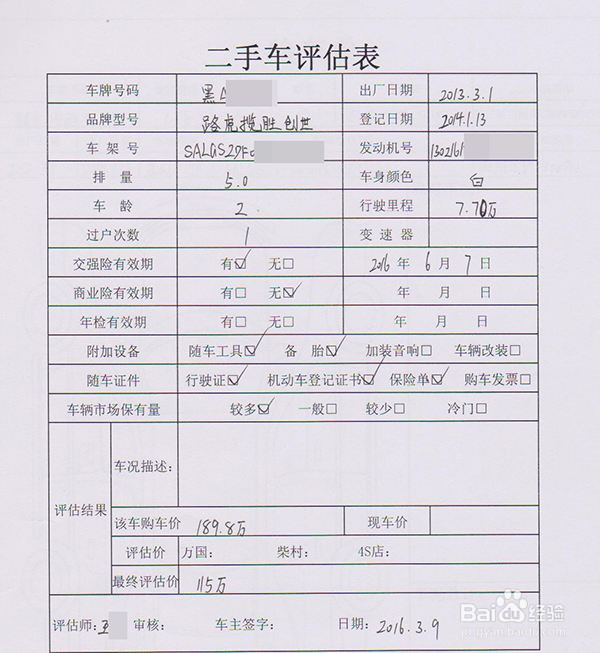 二手车评估表
车牌号码 黑A 出厂日期 2013.3.1
品牌型号 路虎揽胜创世 登记日期 2014.1.13
车架号 SALGS2DF 发动机号 1302161
排量 5.0 车身颜色 白
车龄 2. 行驶里程 7.70万
过户次数 1 变速器
交强险有效期 有☑ 无□ 2016年6月7日
商业险有效期 有□ 无☑ 年 月 日
年检有效期 有□ 无□ 年 月 日
附加设备 随车工具☑ 备胎☑ 加装音响□ 车辆改装□
随车证件 行驶证☑ 机动车登记证书☑ 保险单☑ 购车发票□
车辆市场保有量 较多☑ 一般□ 较少□ 冷门□
评估结果 车况描述：
该车购车价 189.8万 现车价
评估价 万国： 柴村： 4S店：
最终评估价 115万
评估师：王 审核： 车主签字： 日期：2016.3.9
Baidu经验
jingyan.baidu.com